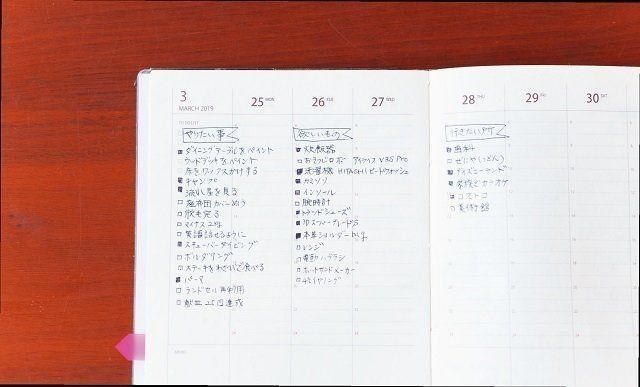 3
MARCH 2019
25 MON
26 TUE
27 WED
28 THU
29 FRI
30 SAT
TO DO LIST
やりたい事
ダイニングテーブルをペイント
ウッドデッキをペイント
床をワックスかけする
キャンプ
流れ星を見る
座布団カバーぬう
脱毛完る
マイナス2kg
英語話せるように
スキューバーダイビング
ボルダリング
ステーキをわさびで食べる
パーマ
ランドセル再利用
献血25回達成
欲しいもの
炊飯器
おそうじロボ アイクリーバ V35 Pro
洗濯機 HITACHI ビートウォッシュ
カミソリ
インソール
腕時計
トランクシューズ
本革ショルダー
レンジ
電動ハブラシ
ホットサンドメーカー
イヤリング
行きたい所
歯科
ディズニーランド
家族とカラオケ
コストコ
美術館
MEMO